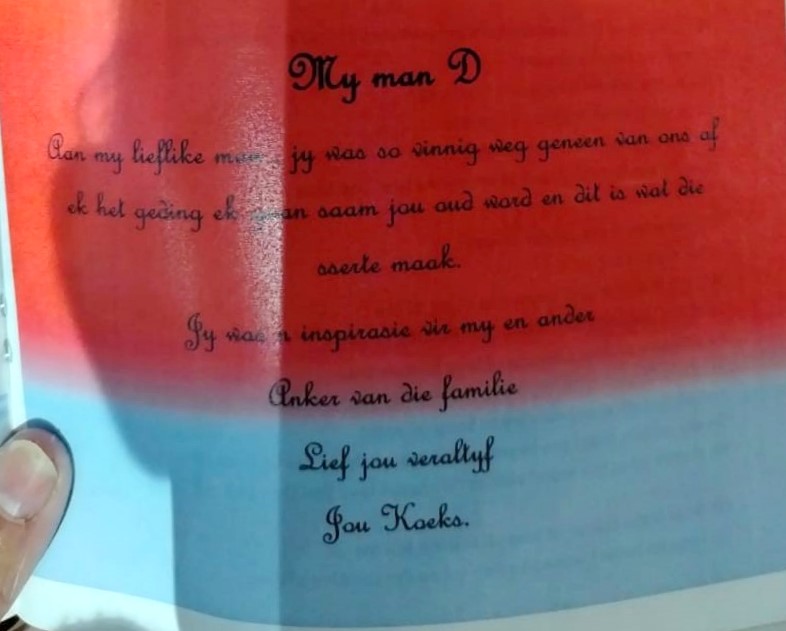 My man D
Aan my lieflike man jy was so vinnig weg geneen van ons af
ek het geding ek gaan saam jou oud word en dit is wat die
sserte maak.
Jy was n inspirasie vir my en ander
Anker van die familie
Lief jou veraltyf
Jou Koeks.